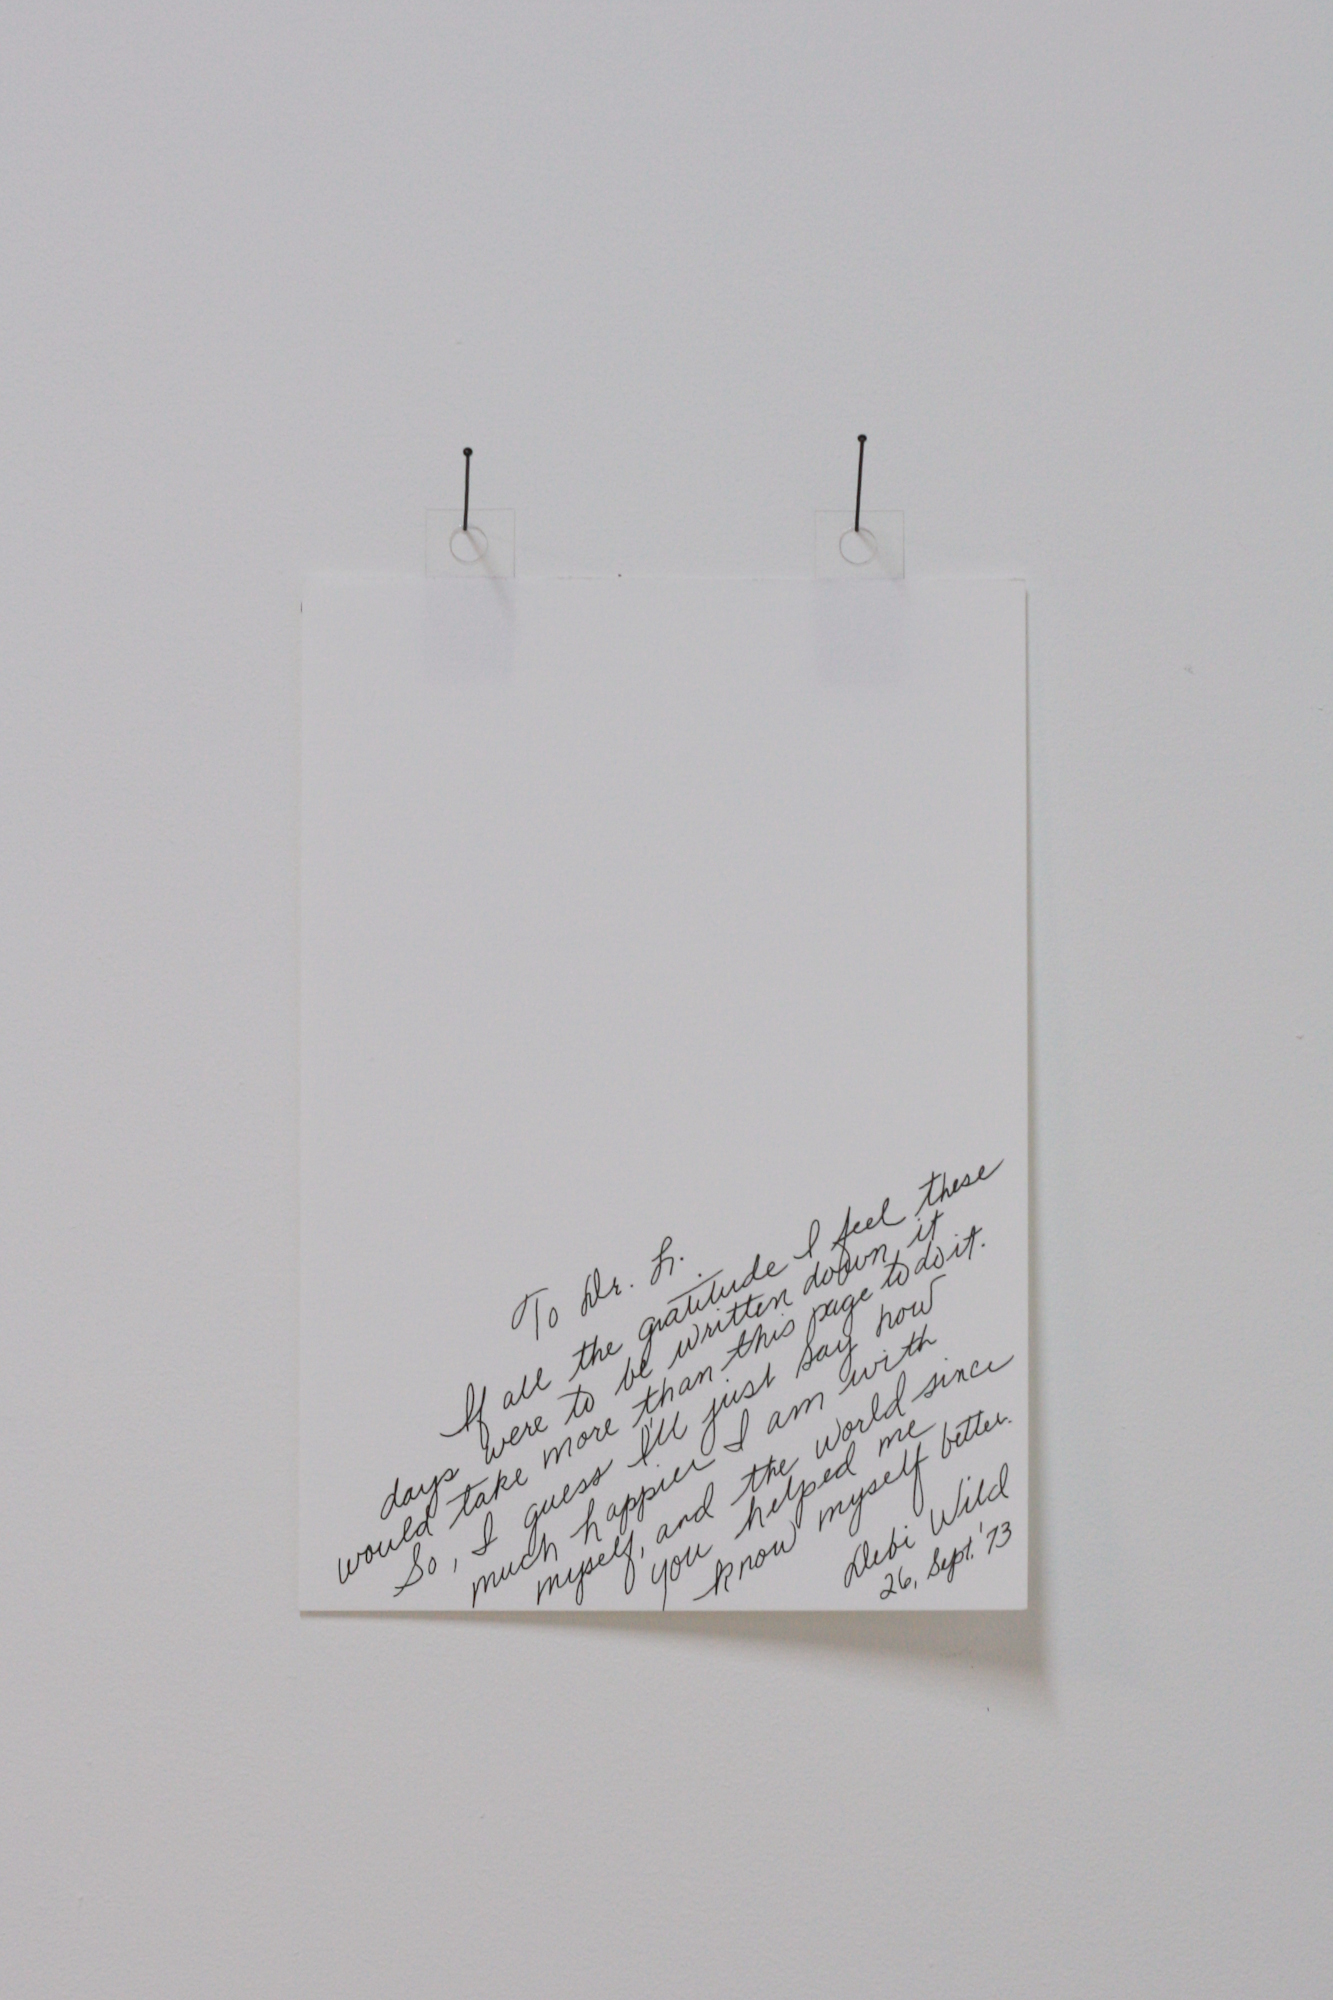 To Dr. L.
If all the gratitude I feel these
days were to be written down it
would take more than this page to do it.
So, I guess I'll just say how
much happier I am with
myself, and the world since
you helped me
know myself better.
Debi Wild
26, Sept. '73